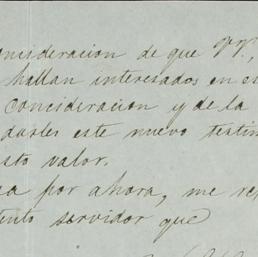 onsideracion de que
hallan interesados en es
Concideracion y de la
darles este nuevo testim
sto valor.
sa por ahora, me re
ento servidor que